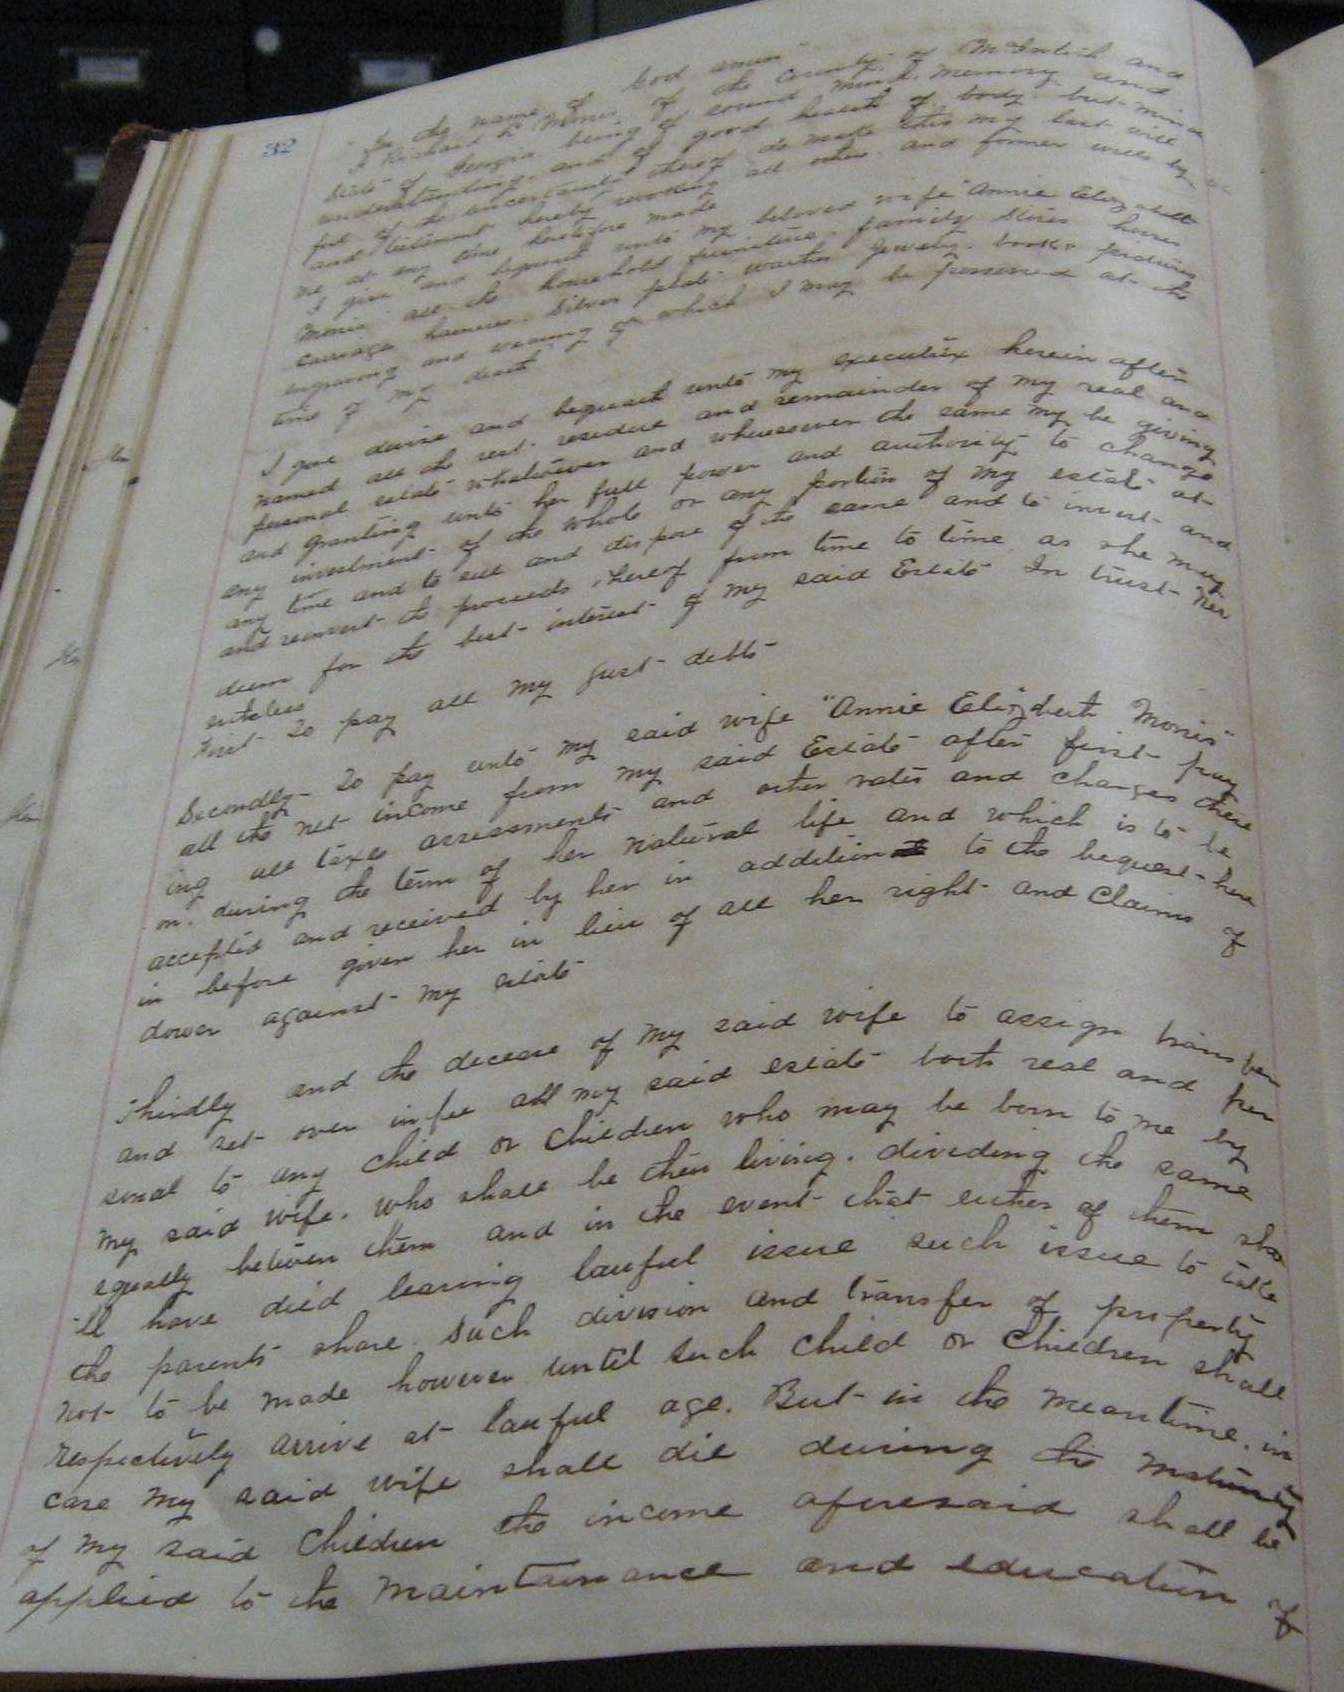 32
"In the name of God amen"
I Richard L Morris of the County of McIntosh and
State of Georgia being of sound mind & memory and
understanding and of good health of body but mind
ful of the uncertainty thereof do make this my last will
and testament hereby revoking all other and former wills by
me at any time heretofore made
I give and bequeath unto my beloved wife "Annie Elizabeth
Morris all the household furniture, family stores horses
carriage harness, silver plate watches Jewelry, books pictures
engraving and wearing of which I may be possessed at the
time of my death
I give devise and bequeath unto my executrix herein after
named all the rest, residue and remainder of my real and
personal estate whatsoever and wheresoever the same my be giving
and granting unto her full power and authority to change
any investment of the whole or any portion of my estate at
any time and to sell and dispose of the same and to invest and
and reinvest the proceeds thereof from time to time as she may
deem for the best interest of my said Estate In trust
First To pay all my just debts
Secondly To pay unto my said wife "Annie Elizabeth Morris"
all the net income from my said Estate after first pay
ing all taxes assessments and other rates and charges there
on. during the term of her natural life and which is to be
accepted and received by her in addition to the bequest here
in before given her in lieu of all her right and Claims of
dower against my estate
Thirdly and the decease of my said wife to assign transfer
and set over in fee all my said estate both real and per
sonal to any child or Children who may be born to me by
my said wife. who shall be then living. dividing the same
equally between them and in the event that either of them sha
'll have died leaving lawful issue such issue to take
the parents share such division and transfer of property
not to be made however until such Child or Children shall
respectively arrive at lawful age. But in the meantime. in
case my said wife shall die during the
of my said Children the income aforesaid shall be
applied to the maintainance and education of